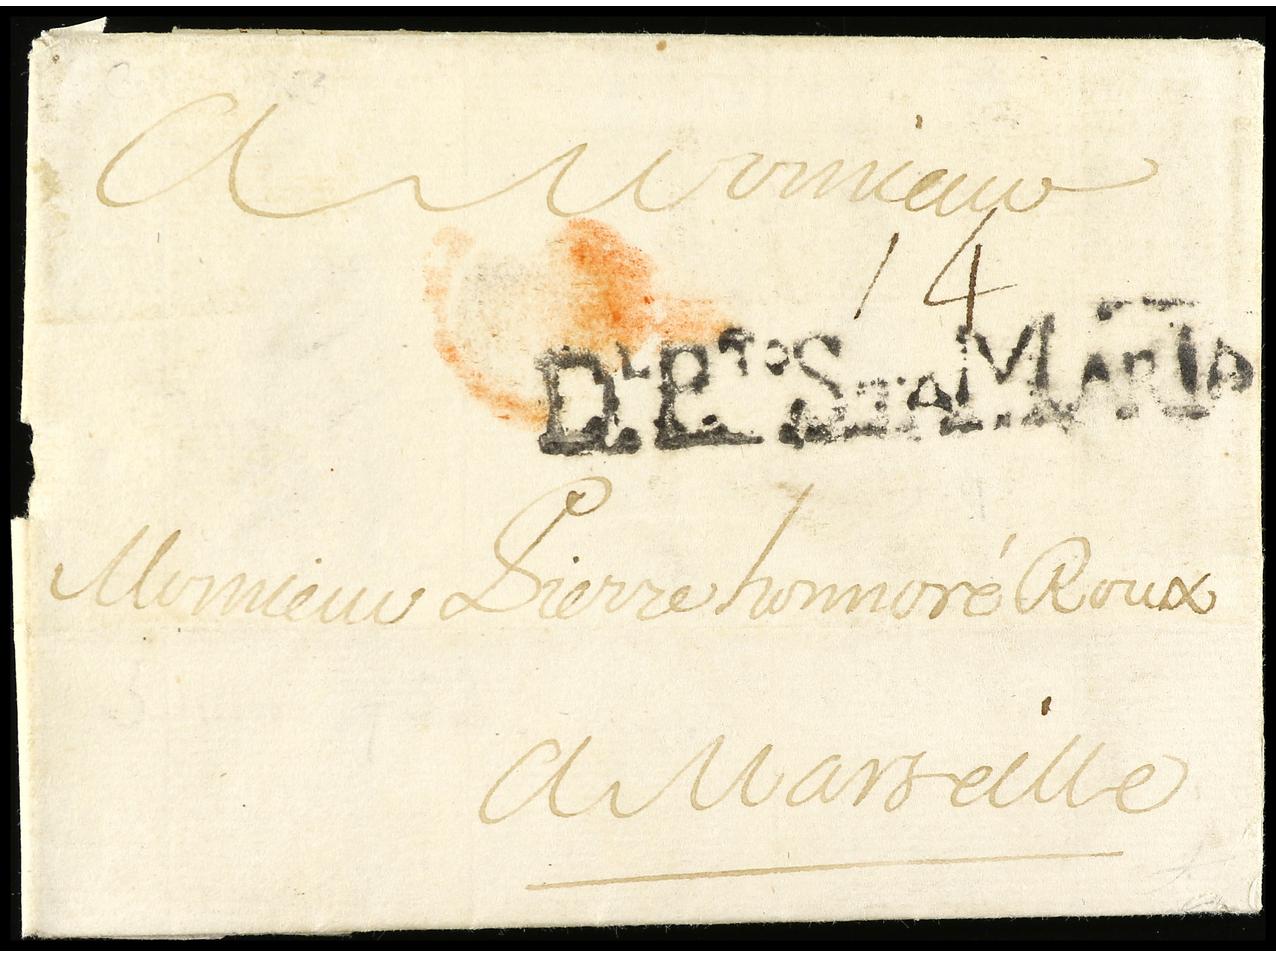 A Monsieur
14
DL. Pto. Sta. MARIA
Monsieur Pierre honnoré Roux
A Marseille